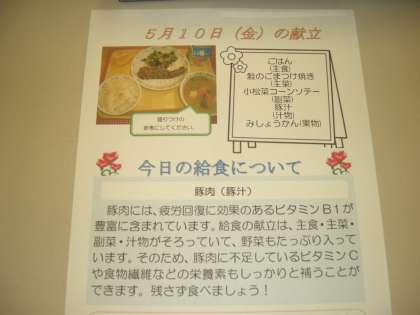 5月10日（金）の献立
ごはん
(主食)
鮭のごまつけ焼き
(主菜)
小松菜コーンソテー
(副菜)
豚汁
(汁物)
みしょうかん(果物)
盛りつけの
参考にしてください。
今日の給食について
豚肉（豚汁）
豚肉には、疲労回復に効果のあるビタミンB1が
豊富に含まれています。給食の献立は、主食・主菜・
副菜・汁物がそろっていて、野菜もたっぷり入って
います。そのため、豚肉に不足しているビタミンC
や食物繊維などの栄養素もしっかりと補うことが
できます。残さず食べましょう！